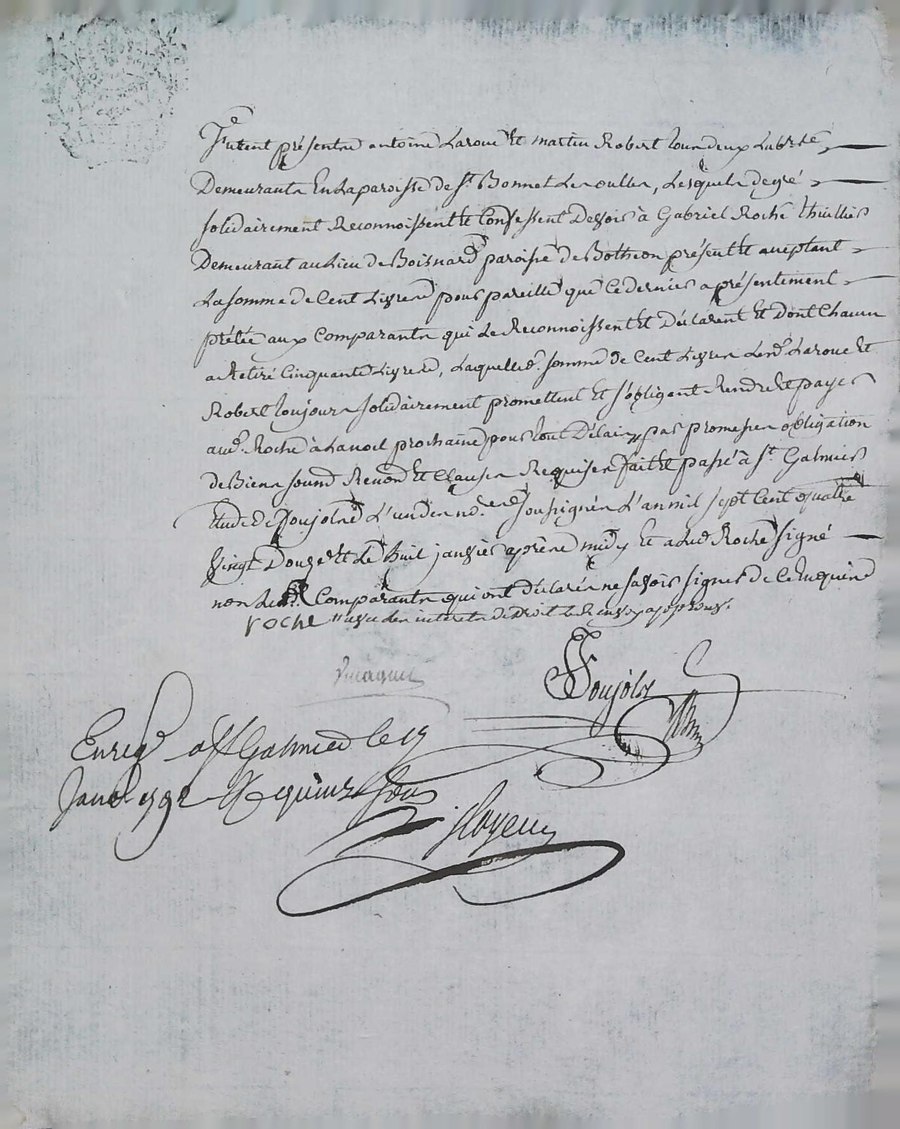 Furent présents antoine Laroue et martin Robert tous deux
Demeurants En la paroisse de St. Bonnet Les oulles, Lesquels de gré
solidairement Reconnoissent et Confessent Devoir à Gabriel Roche thuillier
Demeurant au Lieu de Boisnard paroisse de Botheon présent et acceptant
La somme de Cent Livres pour pareille que Ce dernier a présentement
prêtée aux Comparants qui Le Reconnoissent et Déclarent Et dont Chacun
a Retiré Cinquante Livres, Laquelle de. somme de Cent Livres Lesd. Laroue et
Robert toujours solidairement promettent et s'obligent Rendre et payer
aud. Roche à La noel prochaine pour tout Délai // par promesses obligation
de Biens soum.ons Renon.ons et Clauses Requises fait et passé à St. Galmier
Etude de Soujols L'un des no.res soussignés L'an mil sept Cent quatre
Vingt Douze et Le huit janvier après midy et a Led. Roche signé
non Les Comparants qui ont déclaré ne savoir signer de Ce Enquis
roche // avec les intérêts de Droit Le Renvoy approuvé.
Soujols
Enreg.é a St Galmier le 19
Janv. 1792 R quinze sous